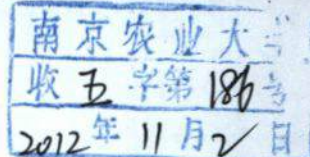 南京农业大学
收五字第186号
2012年11月2日